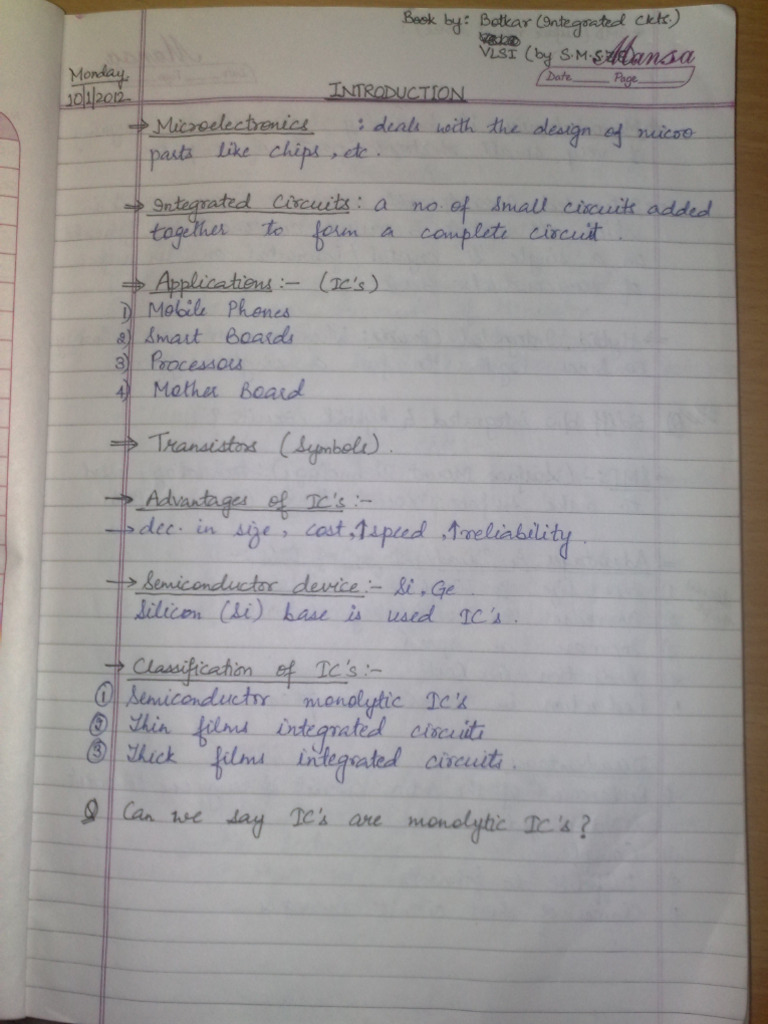 Book by: Botkar (Integrated Ckts.)
VLSI (by S.M.S
Mansa
Monday
10/1/2012
Date Page
INTRODUCTION
⇒ Microelectronics : deals with the design of micro
parts like chips, etc.
⇒ Integrated Circuits : a no. of small circuits added
together to form a complete circuit.
⇒ Applications :- (IC's)
1) Mobile Phones
2) Smart Boards
3) Processors
4) Mother Board
⇒ Transistors (Symbols).
→ Advantages of IC's :-
→ dec. in size, cost, ↑speed, ↑reliability.
→ Semiconductor device :- Si, Ge.
Silicon (Si) base is used IC's.
→ Classification of IC's :-
① Semiconductor monolytic IC's
② Thin films integrated circuits
③ Thick films integrated circuits.
Q Can we say IC's are monolytic IC's?